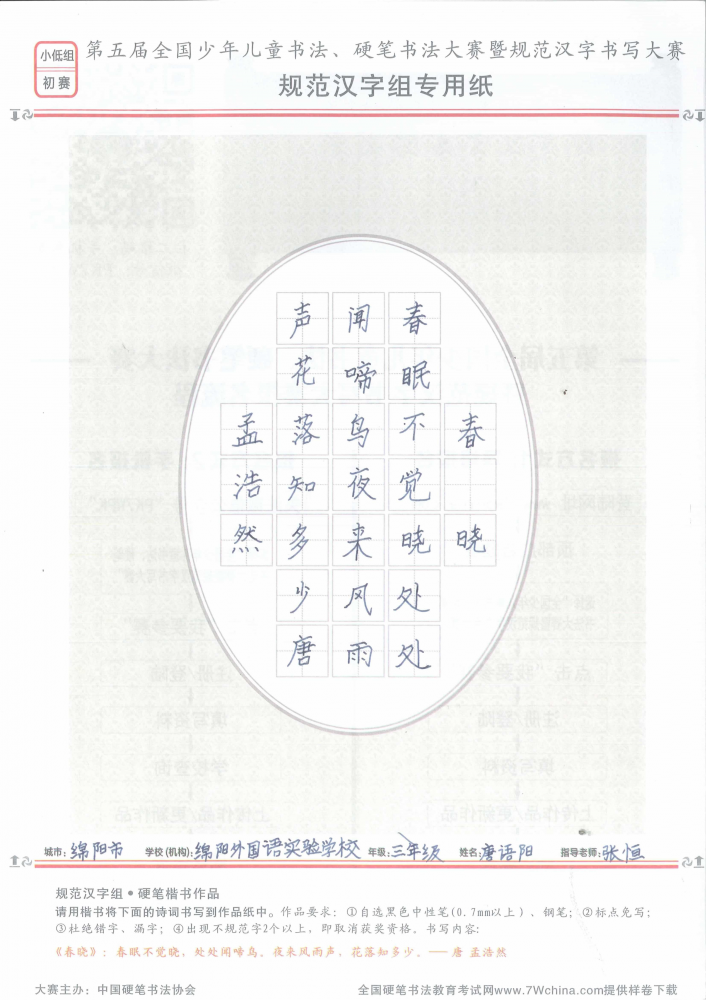 小低组
初赛
第五届全国少年儿童书法、硬笔书法大赛暨规范汉字书写大赛
规范汉字组专用纸
春晓
春眠不觉晓处处
闻啼鸟夜来风雨
声花落知多少唐
孟浩然
城市：绵阳市 学校(机构)：绵阳外国语实验学校 年级：三年级 姓名：唐语阳 指导老师：张恒
规范汉字组●硬笔楷书作品
请用楷书将下面的诗词书写到作品纸中。作品要求：①自选黑色中性笔(0.7mm以上）、钢笔；②标点免写；
③杜绝错字、漏字；④出现不规范字2个以上，即取消获奖资格。书写内容：
《春晓》：春眠不觉晓，处处闻啼鸟。夜来风雨声，花落知多少。——唐 孟浩然
大赛主办：中国硬笔书法协会 全国硬笔书法教育考试网www.7Wchina.com提供样卷下载